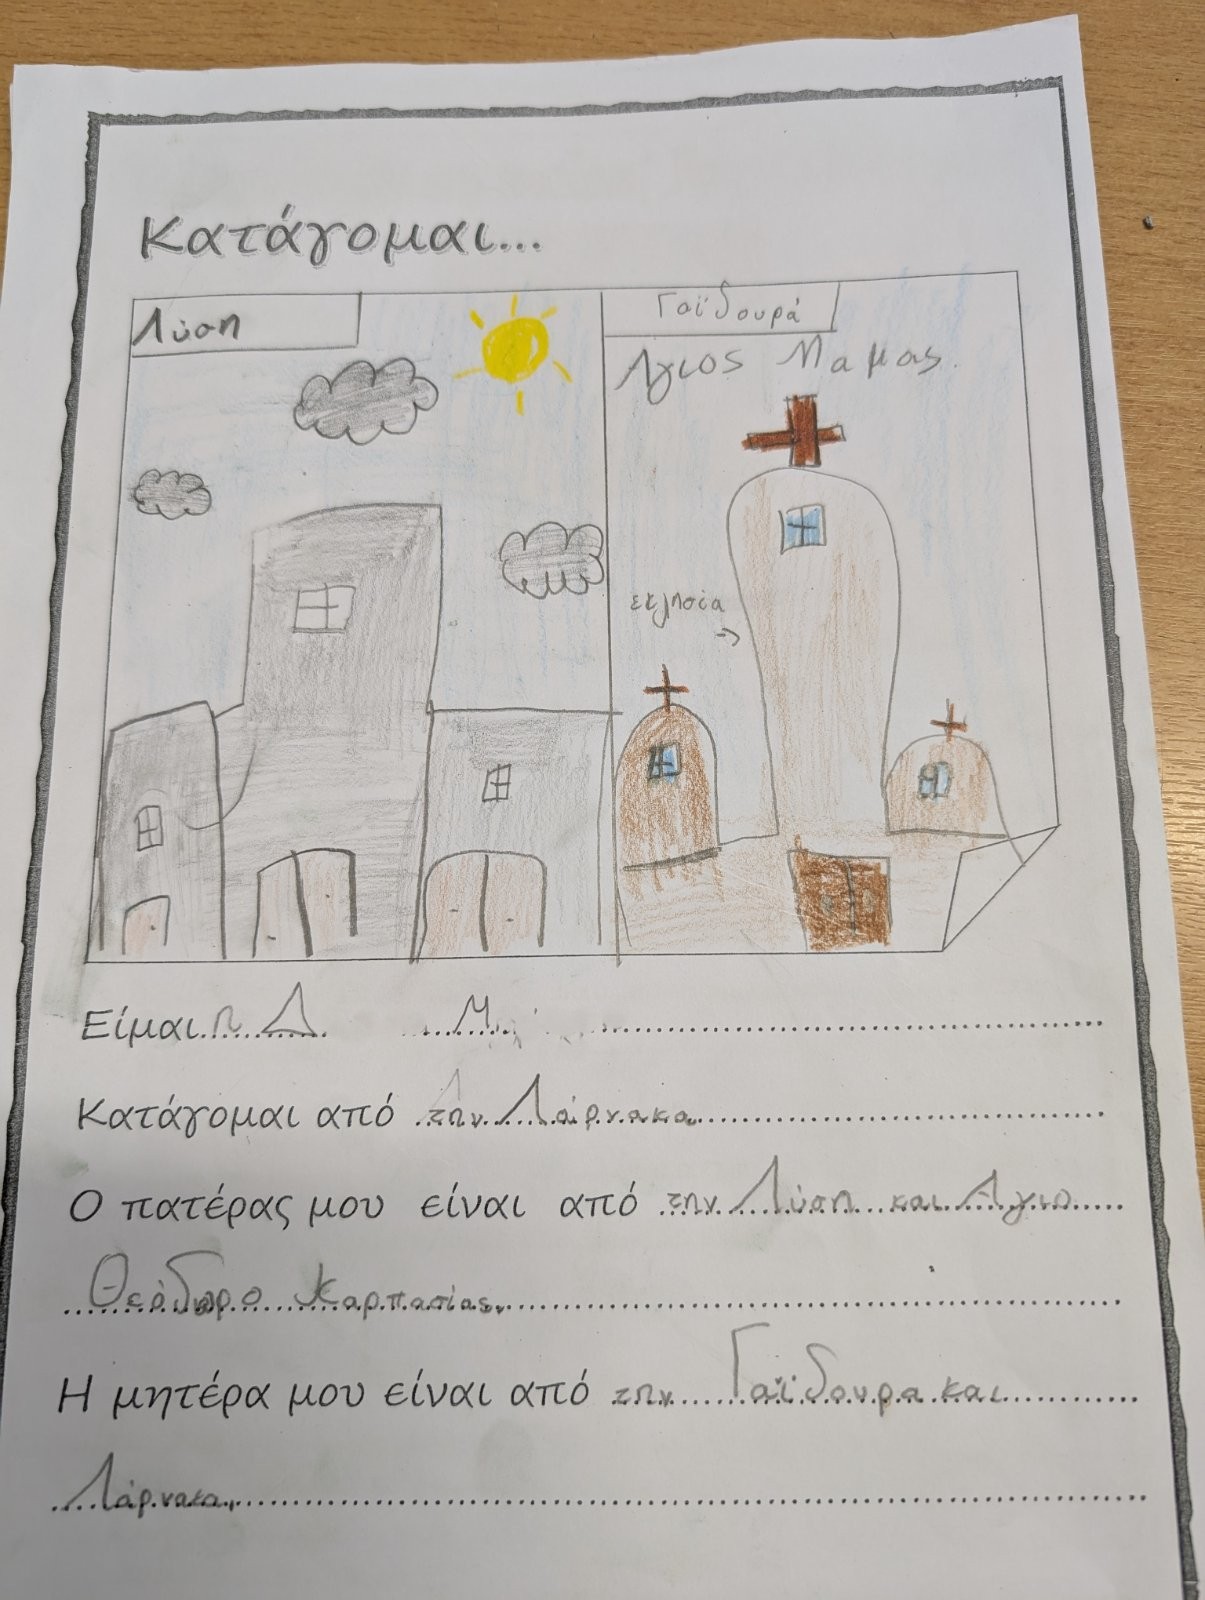 Κατάγομαι...
Λύση
Γαϊδουρά
Άγιος Μαμας.
εκλησία
Είμαι η Δ Μ
Κατάγομαι από την Λάρνακα
Ο πατέρας μου είναι από την Λύση και Άγιο
Θεόδωρο Καρπασίας.
Η μητέρα μου είναι από την Γαϊδουρα και
Λάρνακα.